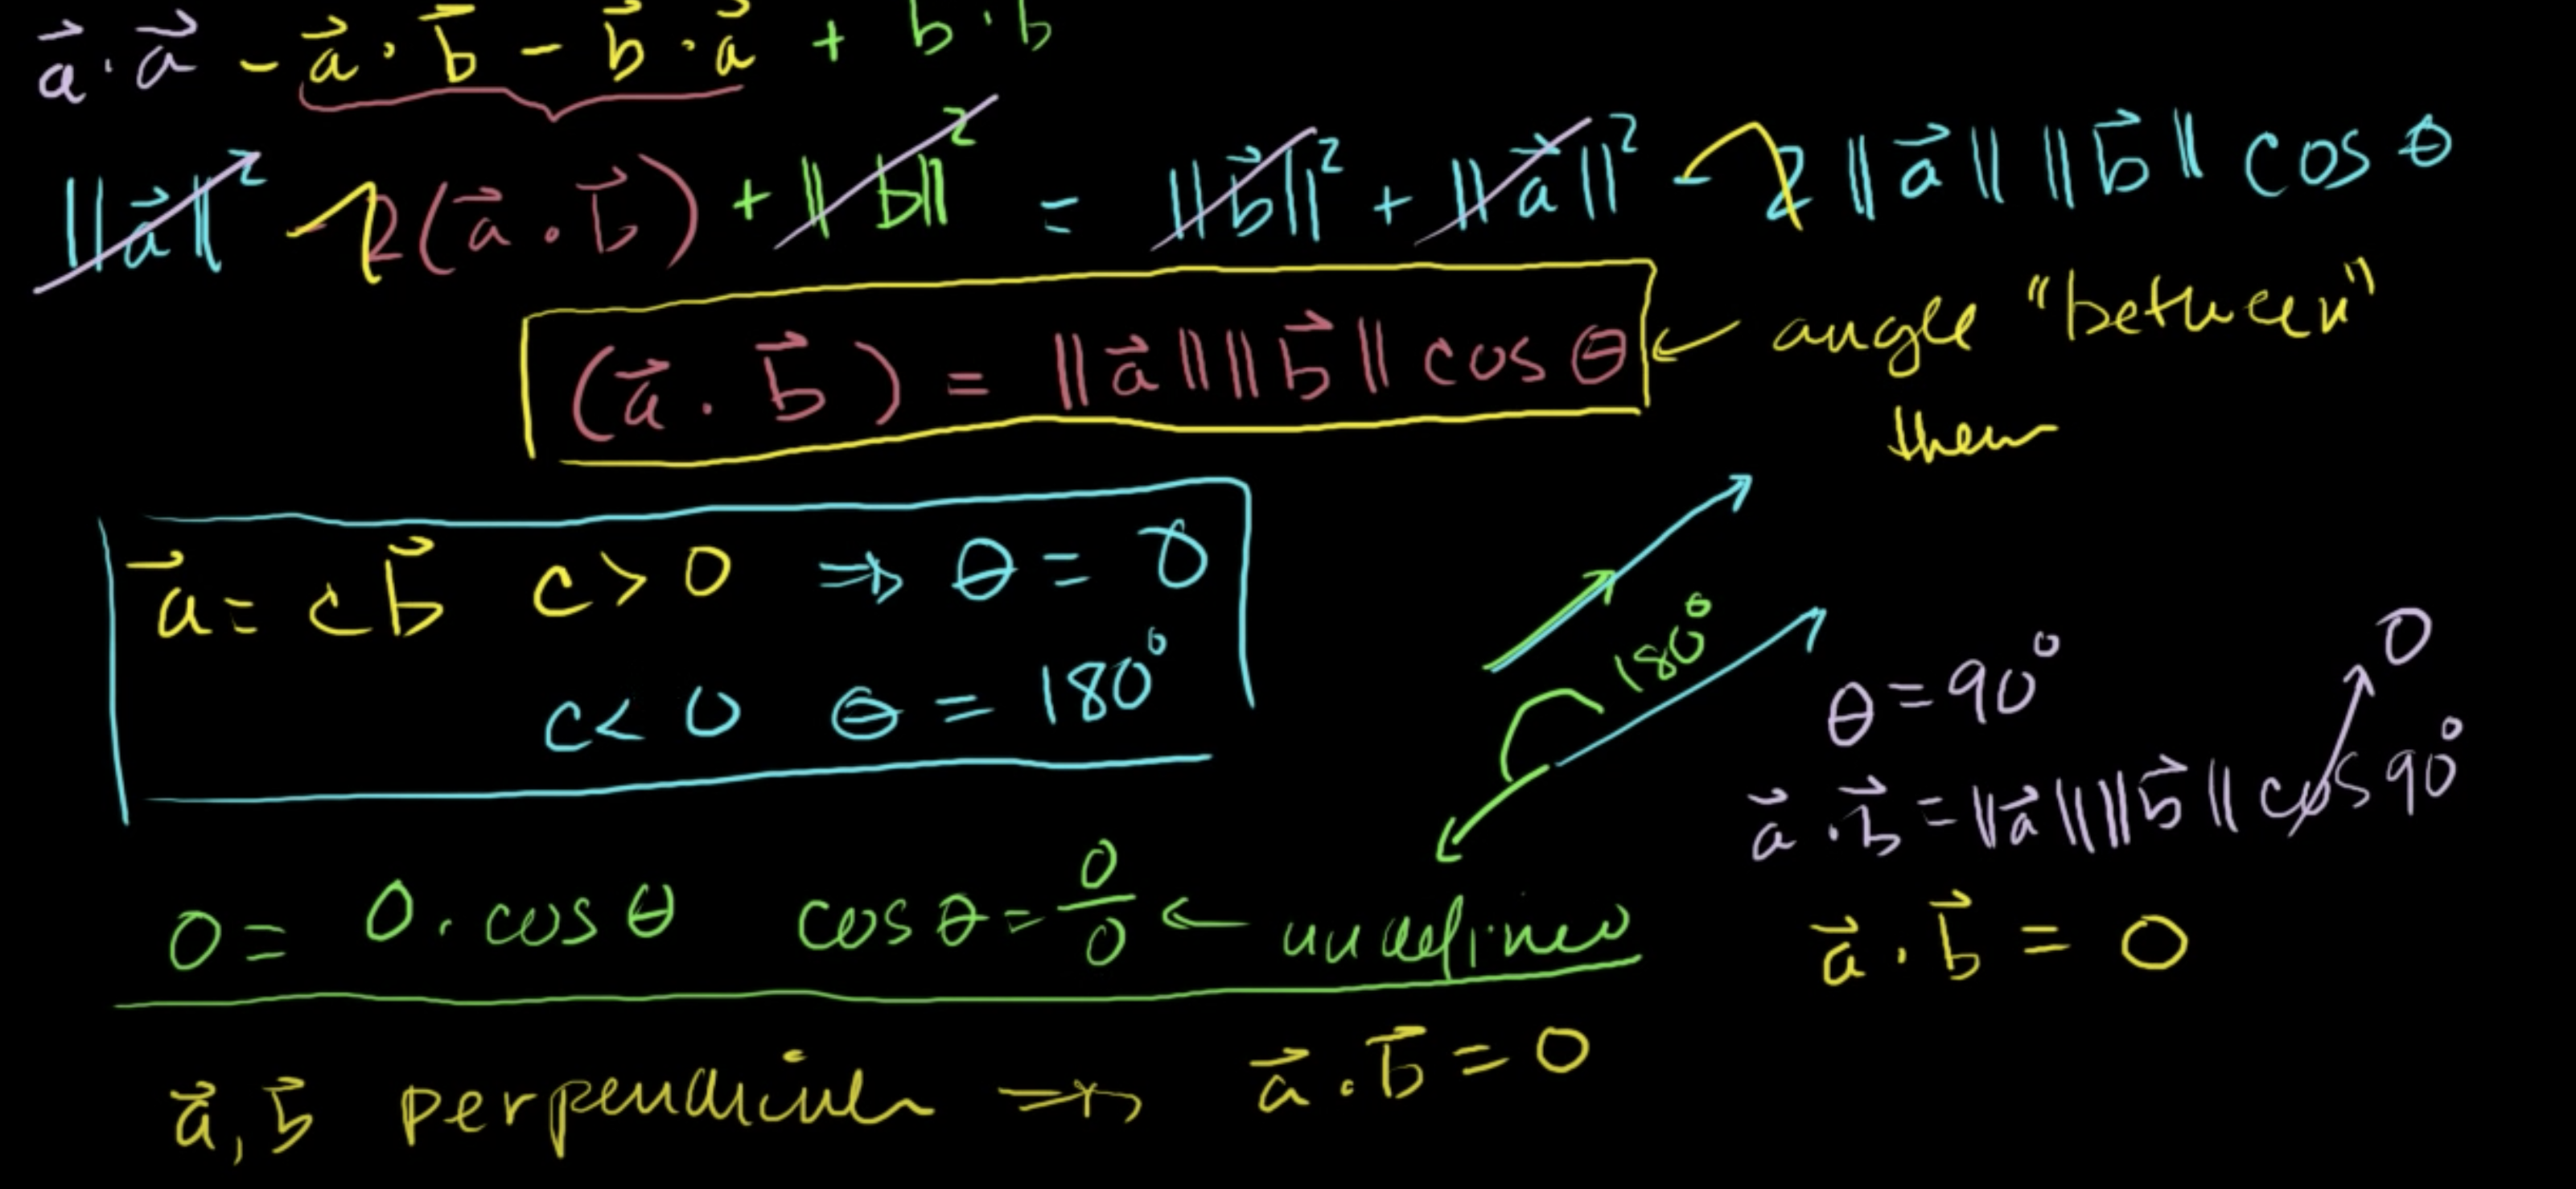 a⃗ · a⃗ - a⃗ · b⃗ - b⃗ · a⃗ + b · b
‖a⃗‖² - 2(a⃗ · b⃗) + ‖b‖² = ‖b⃗‖² + ‖a⃗‖² - 2‖a⃗‖ ‖b⃗‖ cos θ
(a⃗ · b⃗) = ‖a⃗‖‖b⃗‖ cos θ ← angle "between"
them
a⃗ = c b⃗ c > 0 ⇒ θ = 0
c < 0 θ = 180°
180°
θ = 90°
0
a⃗ · b⃗ = ‖a⃗‖‖b⃗‖ cos 90°
a⃗ · b⃗ = 0
0 = 0 · cos θ cos θ = 0/0 ← undefined
a⃗, b⃗ perpendicular ⇒ a⃗ · b⃗ = 0